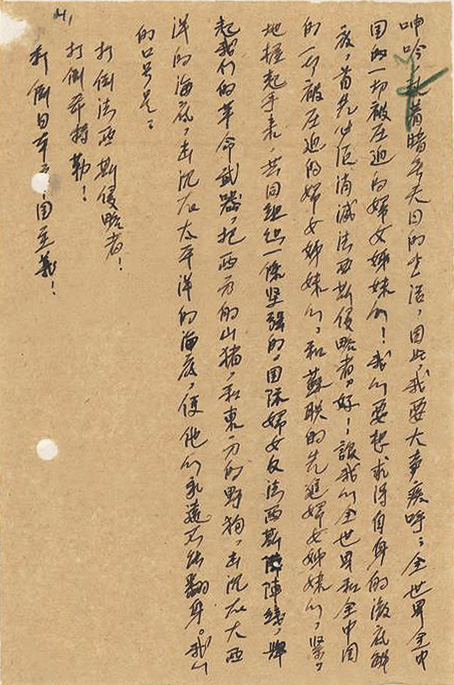 呻吟,过着暗无天日的生活,因此,我要大声疾呼:全世界全中
国的一切被压迫的妇女姊妹们!我们要想求得自身的澈底解
放,首先必须消灭法西斯侵略者。好!让我们全世界和全中国
的一切被压迫的妇女姊妹们,和苏联的先进妇女姊妹们,紧紧
地握起手来,共同组织一条坚强的,国际妇女反法西斯陣线,举
起我们的革命武器,把西方的山猪,和東方的野狗,击沉在大西
洋的海底,击沉在太平洋的海底,使他们永遠不能翻身。我们
的口号是:
打倒法西斯侵略者!
打倒希特勒!
打倒日本帝国主義!